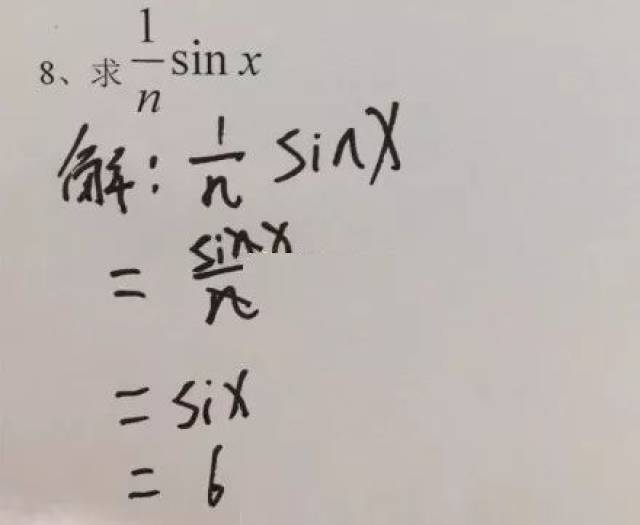 8、求 1/n sin x
解: 1/n sin x
= sin x/n
= six
= 6